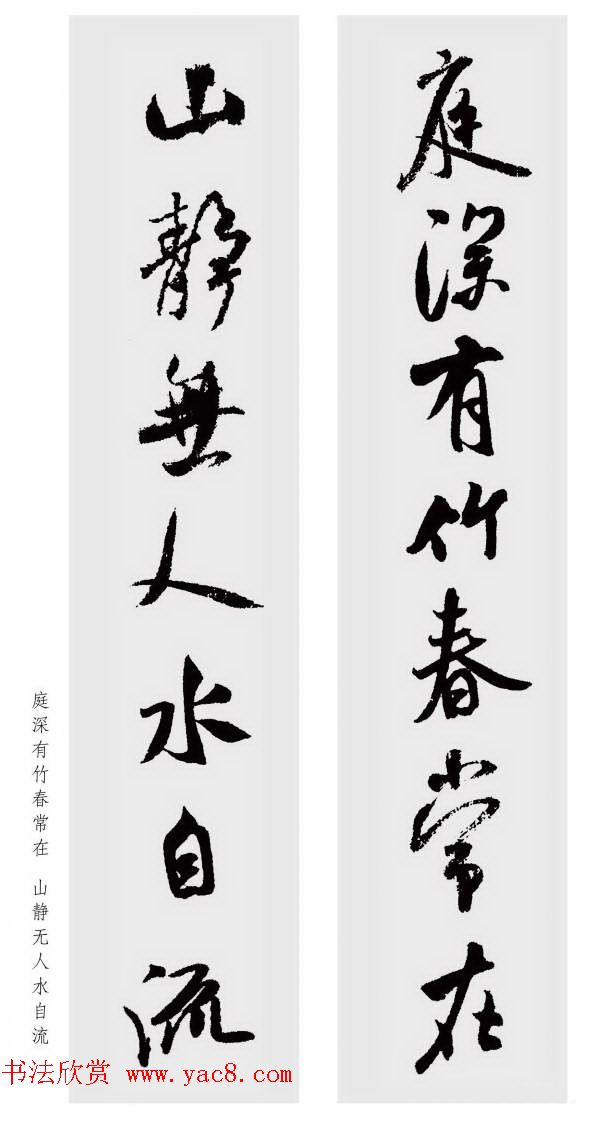 庭深有竹春常在
山靜無人水自流
庭深有竹春常在 山静无人水自流
书法欣赏 www.yac8.com